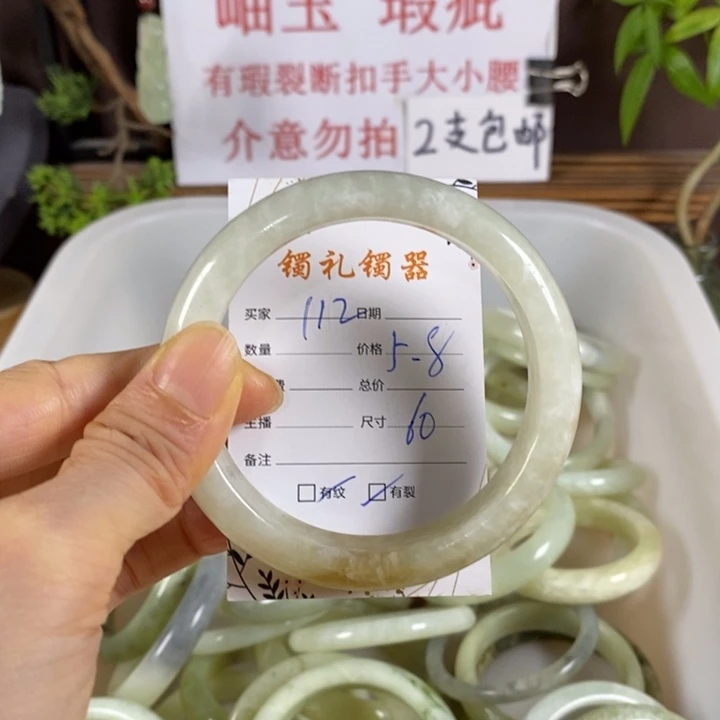 岫玉 瑕疵
有瑕裂断扣手大小腰
介意勿拍 2支包邮
镯礼镯器
买家 112 日期
数量 价格 5-8
总价
主播 尺寸 60
备注
有纹 有裂